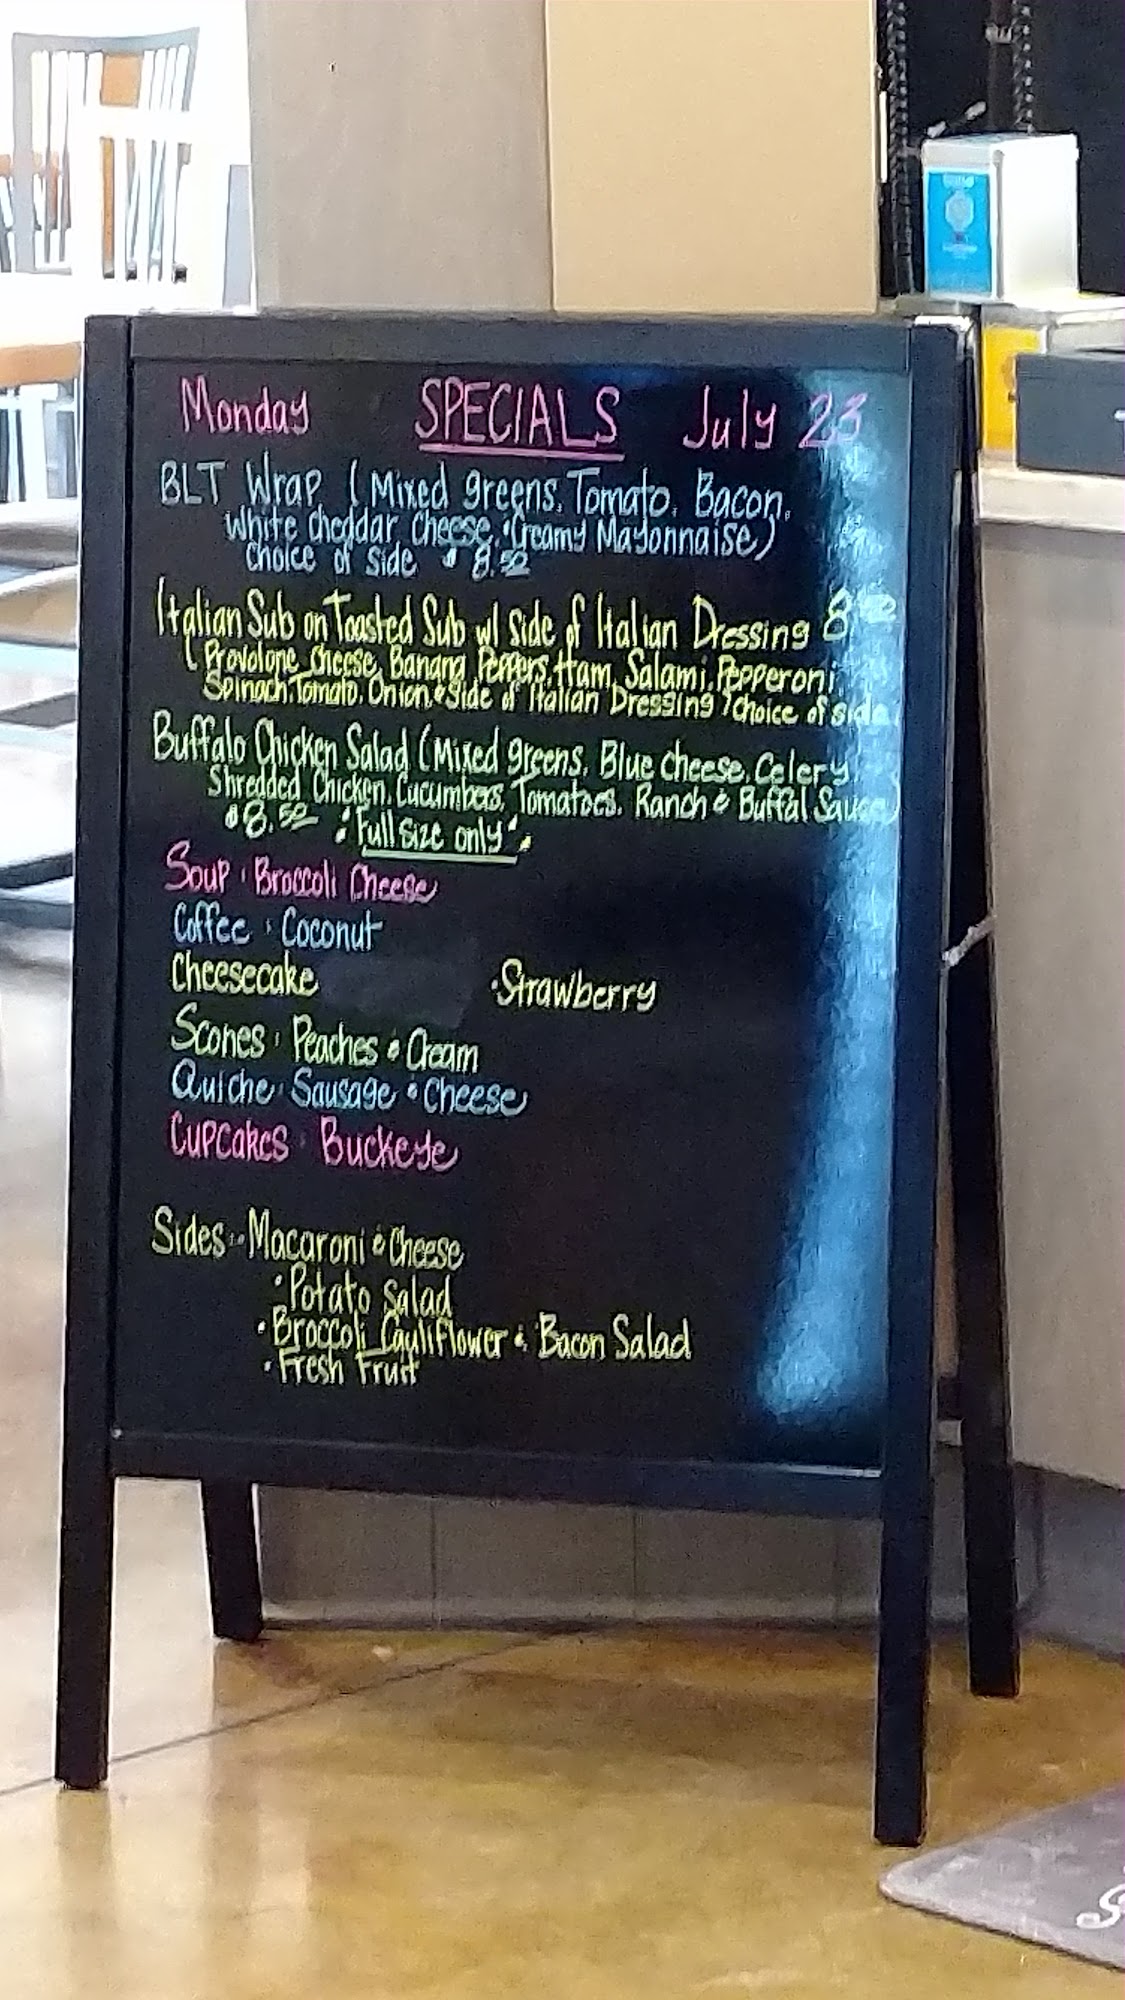 Monday SPECIALS July 23
BLT Wrap (Mixed greens, Tomato, Bacon,
White Cheddar Cheese, & Creamy Mayonnaise)
Choice of side $8.50
Italian Sub on Toasted Sub w/ side of Italian Dressing 8.50
(Provolone Cheese, Banana Peppers, Ham, Salami, Pepperoni,
Spinach, Tomato, Onion & Side of Italian Dressing) choice of side
Buffalo Chicken Salad (Mixed greens, Blue cheese, Celery,
Shredded Chicken, Cucumbers, Tomatoes, Ranch & Buffal Sauce)
$8.50 "Full size only"
Soup · Broccoli Cheese
Coffee · Coconut
Cheesecake · Strawberry
Scones · Peaches & Cream
Quiche · Sausage & Cheese
Cupcakes · Buckeye
Sides · Macaroni & Cheese
· Potato Salad
· Broccoli Cauliflower & Bacon Salad
· Fresh Fruit